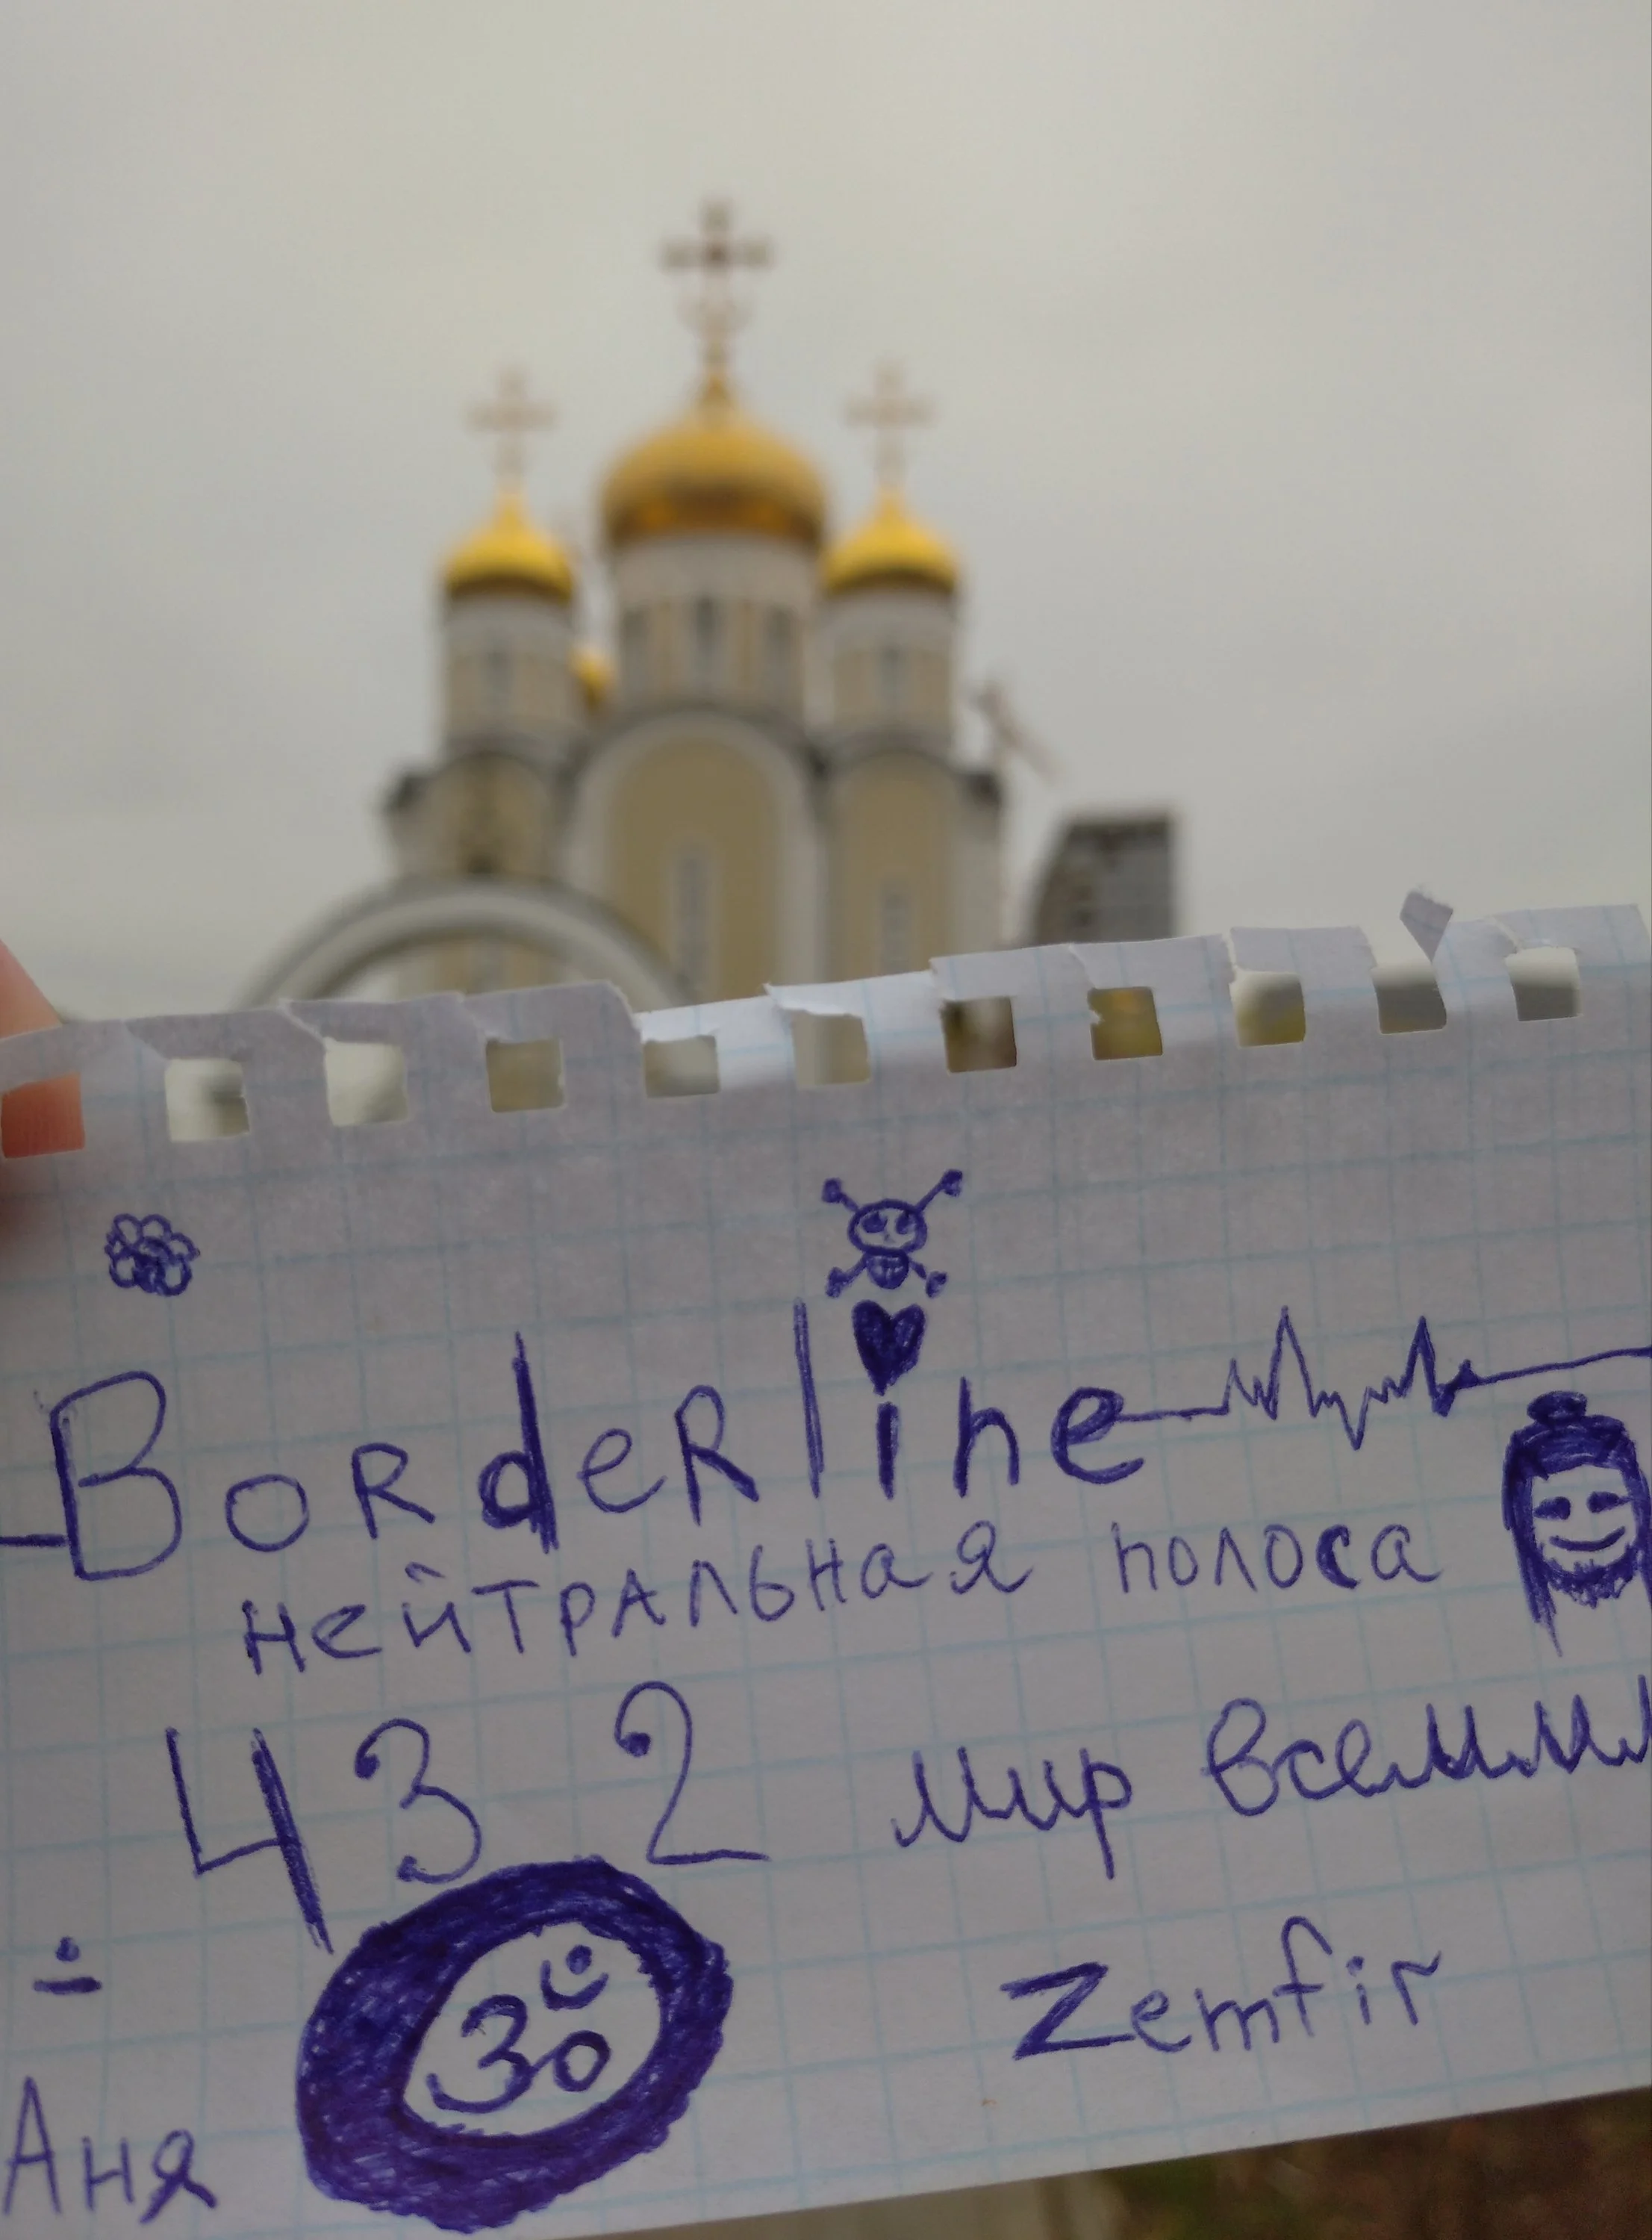 Borderline
нейтральная полоса
432 мир всем
ॐ
Zemfir
Аня